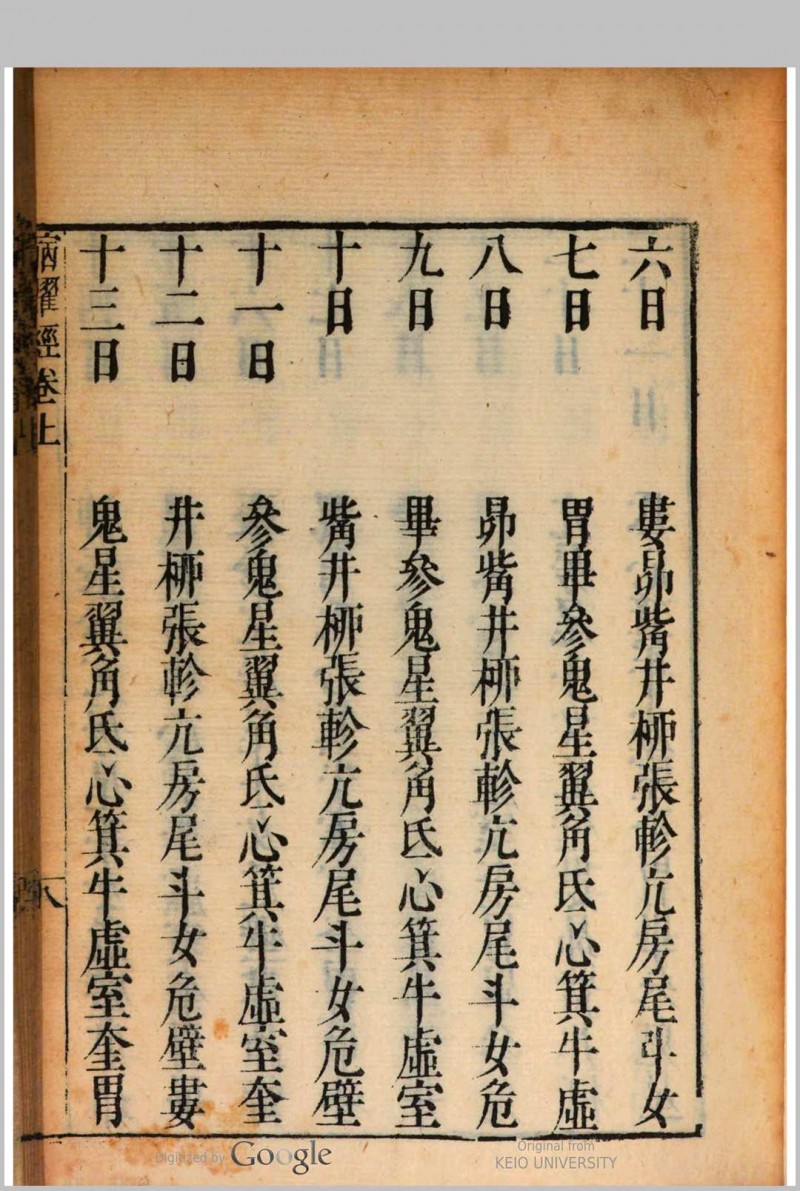 六日 婁昴觜井柳張軫亢房尾斗女
七日 胃畢參鬼星翼角氐心箕牛虛
八日 昴觜井柳張軫亢房尾斗女危
九日 畢參鬼星翼角氐心箕牛虛室
十日 觜井柳張軫亢房尾斗女危壁
十一日 參鬼星翼角氐心箕牛虛室奎
十二日 井柳張軫亢房尾斗女危壁婁
十三日 鬼星翼角氐心箕牛虛室奎胃
宿曜經卷上
八
Digitized by Google
Original from
KEIO UNIVERSITY